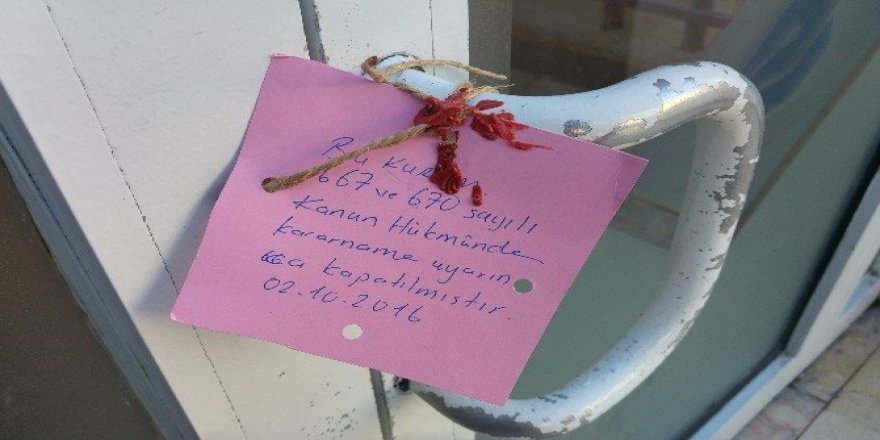 Bu kurum
667 ve 670 sayılı
Kanun Hükmünde
kararname uyarın
ca kapatılmıştır.
02.10.2016